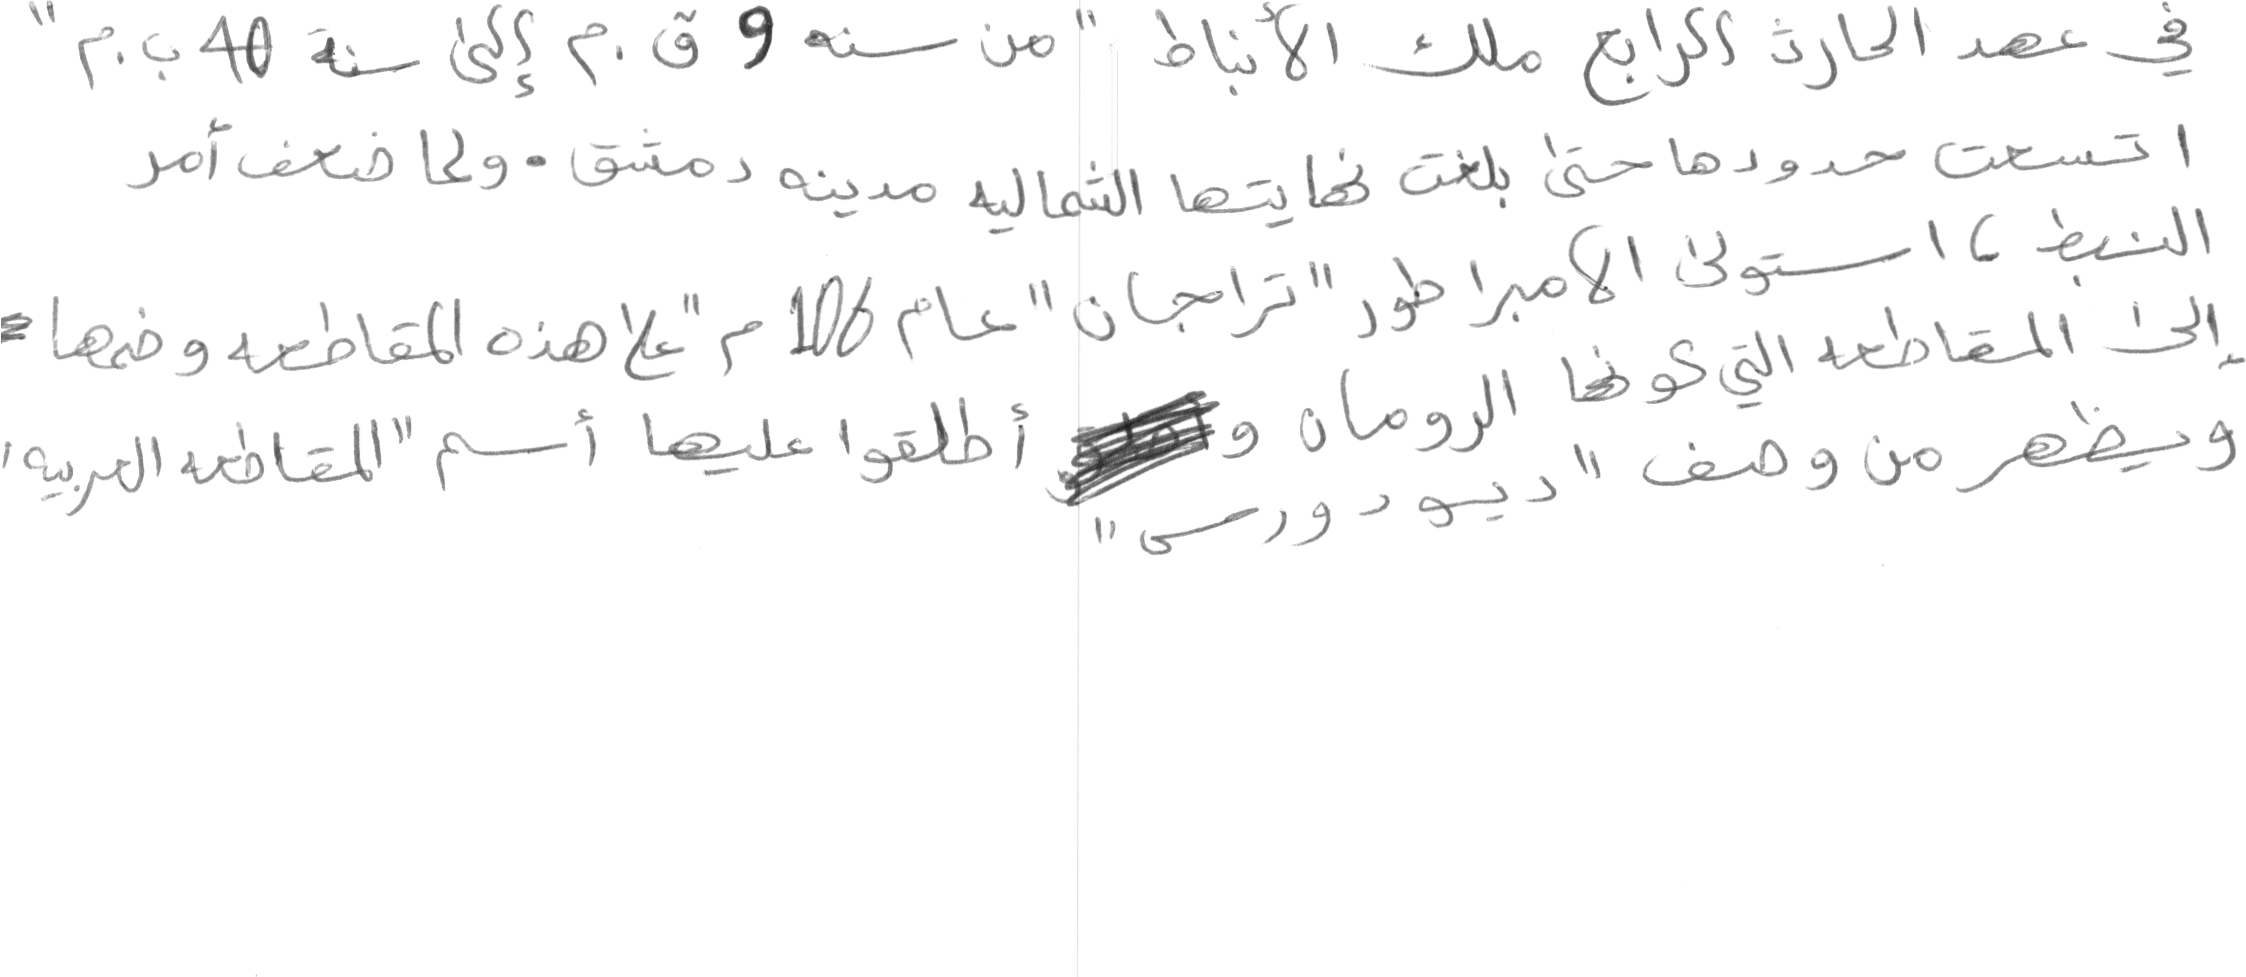 في عهد الحارث الرابع ملك الأنباط "من سنه 9 ق.م إلى سنة 40 ب.م"
اتسعت حدودها حتى بلغت نهايتها الشماليه مدينه دمشق. ولما ضعف أمر
النبط، استولى الامبراطور "تراجان" عام 106 م" على هذه المقاطعه وضمها
إلى المقاطعه التي كونها الرومان و أطلقوا عليها أسم "المقاطعه العربيه"
ويظهر من وصف "ديودورس"